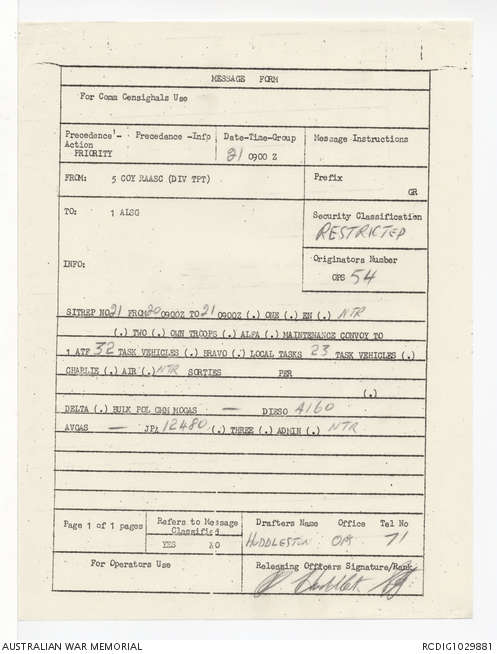 MESSAGE FORM
For Comm Censighals Use
Precedence'- Precedence -Info Date-Time-Group Message Instructions
Action
PRIORITY 21 0900 Z
FROM: 5 COY RAASC (DIV TPT) Prefix
GR
TO: 1 ALSG Security Classification
RESTRICTED
Originators Number
INFO:
OPS 54
SITREP NO 21 FROM 20 0900Z TO 21 0900Z (.) ONE (.) EN (.) NTR
(.) TWO (.) OWN TROOPS (.) ALFA (.) MAINTENANCE CONVOY TO
1 ATF 32 TASK VEHICLES (.) BRAVO (.) LOCAL TASKS 23 TASK VEHICLES (.)
CHARLIE (.) AIR (.) NTR SORTIES PER
(.)
DELTA (.) BULK POL GMM MOGAS — DIESO 4160
AVGAS — JP4 12480 (.) THREE (.) ADMIN (.) NTR
Page 1 of 1 pages Refers to Message Drafters Name Office Tel No
Classified
YES NO HUDDLESTON OPS 71
For Operators Use Releasing Officers Signature/Rank
AUSTRALIAN WAR MEMORIAL RCDIG1029881